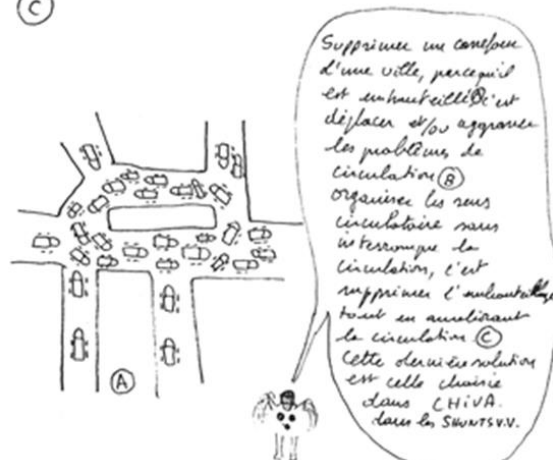 C
Supprimer un carrefour
d'une ville, parcequ'il
est embouteillé A c'est
déplacer et/ou aggraver
les problèmes de
circulation B
organiser les sens
circulatoire sans
interrompre la
circulation, c'est
supprimer l'embouteillage
tout en améliorant
la circulation C
Cette dernière solution
est celle choisie
dans CHIVA.
dans les SHUNTS V.V.
A